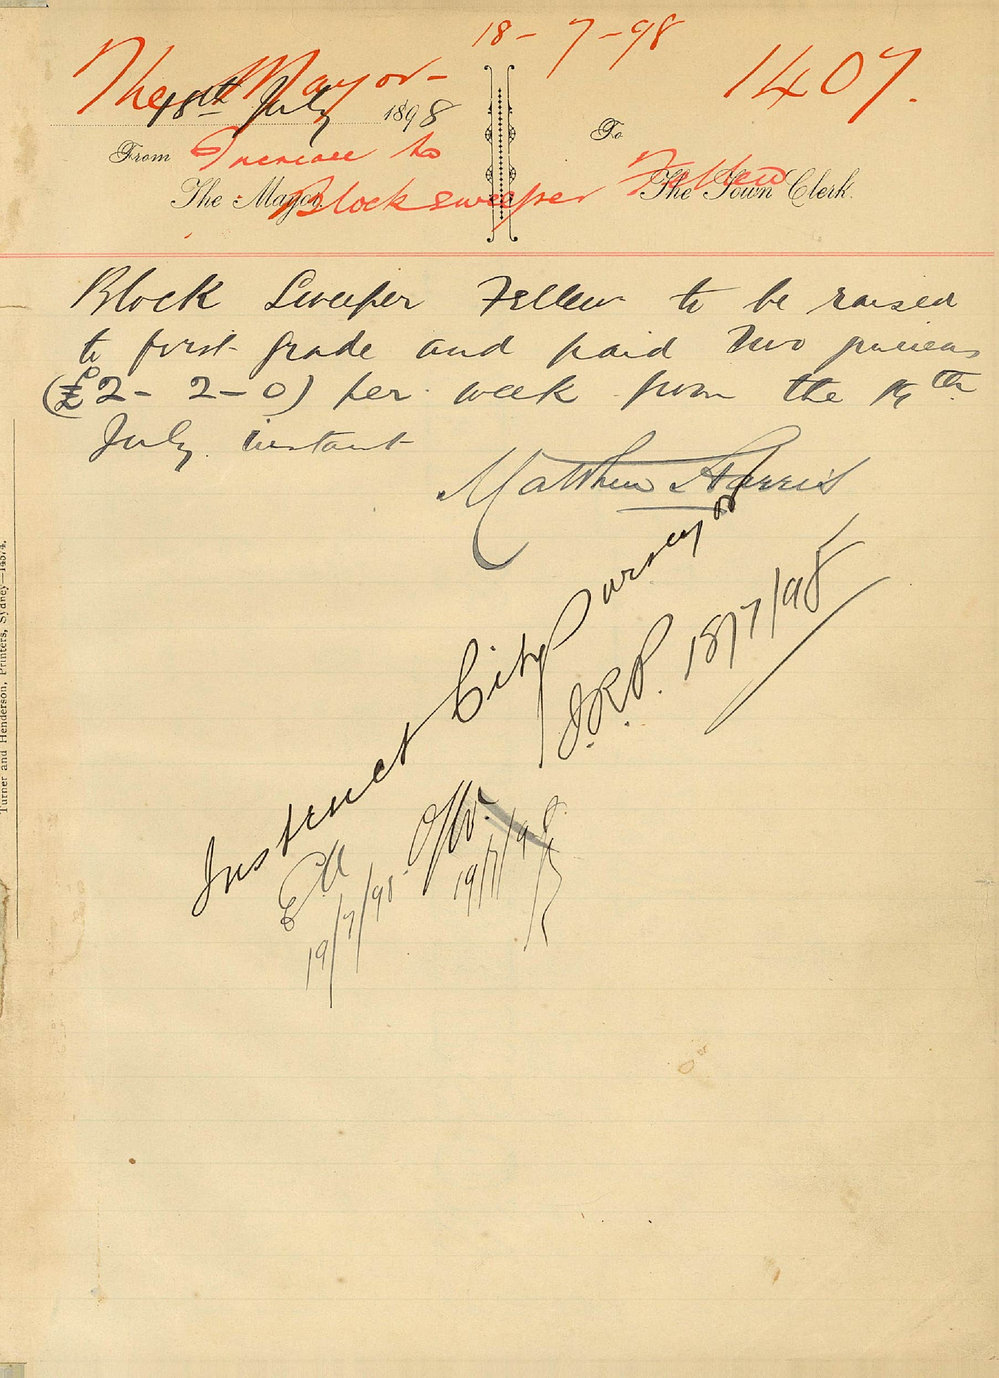 18-7-98
The Mayor - 1407.
18th July 1898
From To
Increase to
The Mayor The Town Clerk.
Blocksweeper Fellew
Block Sweeper Fellew to be raised
to first grade and paid Two guineas
(£2-2-0) per week from the
July instant
Matthew Harris
Instruct City Surveyor
J.R.P. 18/7/98
19/7/98
19/7/98
Turner and Henderson, Printers, Sydney—14574.